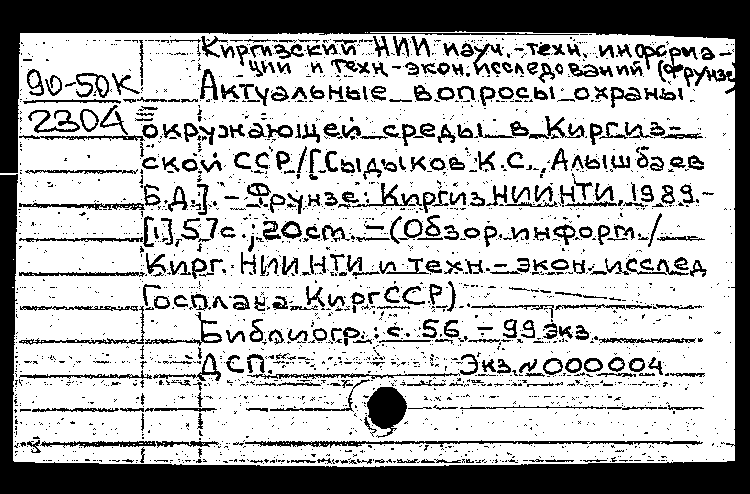 Киргизский НИИ науч.-техн. информа-
ции и техн.-экон. исследований (Фрунзе)
90-50К
2304
Актуальные вопросы охраны
окружающей среды в Киргиз-
ской ССР/[Сыдыков К.С., Алышбаев
Б.Д.]. – Фрунзе: Киргиз НИИНТИ, 1989.-
[1], 57с.; 20cm. – (Обзор. информ. /
Кирг. НИИ НТИ и техн.-экон. исслед
Госплана КиргССР)
Библиогр.: с. 56. – 99 экз.
ДСП. Экз. N000004